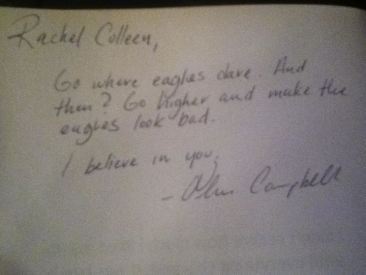 Rachel Colleen,
Go where eagles dare. And
then? Go higher and make the
eagles look bad.
I believe in you.
- Campbell